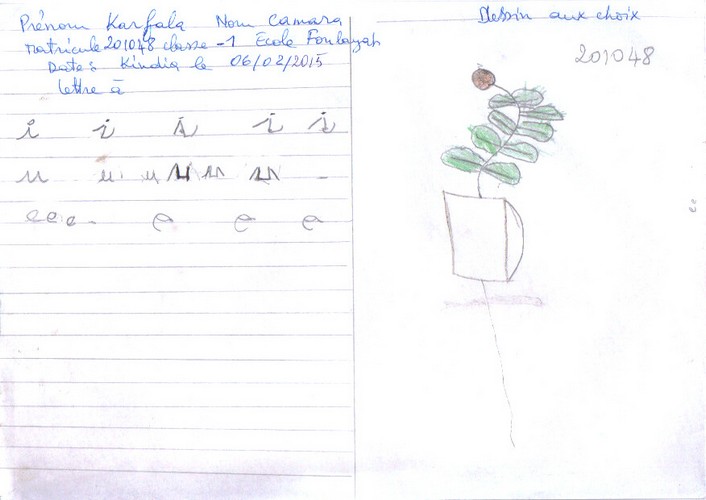 Prénom Karfala Nom Camara
matricule 201048 classe -1 Ecole Foulayah
Date: Kindia le 06/02/2015
lettre à
i i i i i
u u u u u u
e e e e e e
Dessin aux choix
201048